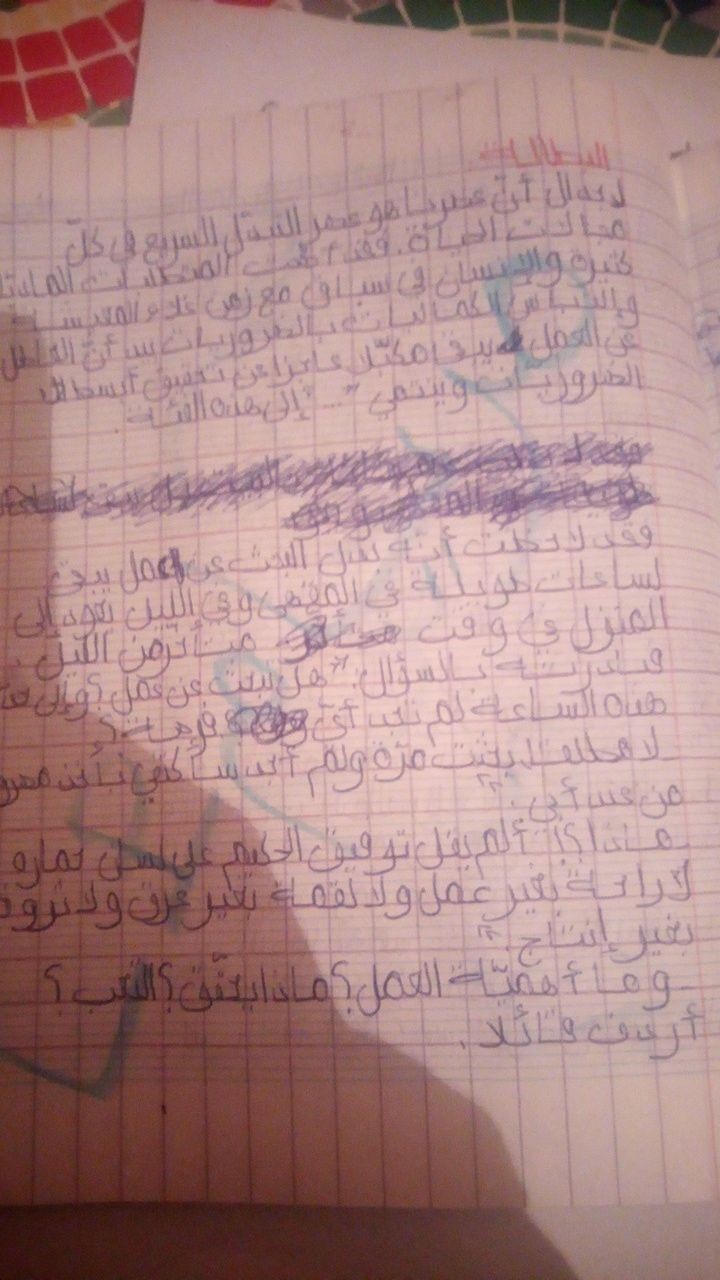 البطالة
لا جدال أنّ عصرنا هو عصر التبدّل السريع في كلّ
مجالات الحياة. فقد أضحت المتطلبات المادية
كثيرة والإنسان في سباق مع زمن غلاء المعيشة
والتباس الكماليات بالضروريات بيد أنّ العاطل
عن العمل يبقى مكبّلا عاجزا عن تحقيق أبسط
الضروريات وينتمي "..." إلى هذه الفئة.
فقد لاحظت أنه بدل البحث عن عمل يبقى
لساعات طويلة في المقهى وفي الليل يعود إلى
المنزل في وقت متأخر من الليل.
فبادرته بالسؤال: "هل تبحث عن عمل؟ وإلى حد
هذه الساعة لم تجد أيّ فرصة؟
لا مطلقا بحثت مرّة ولم أجد سأكتفي بأخذ مصروفي
من عند أبي."
ماذا؟! ألم يقل توفيق الحكيم على لسان حماره
لا راحة بغير عمل ولا لقمة بغير عرق ولا ثروة
بغير إنتاج."
- وما أهميّة العمل؟ ماذا يحقّق؟ التعب؟
أردف قائلا.